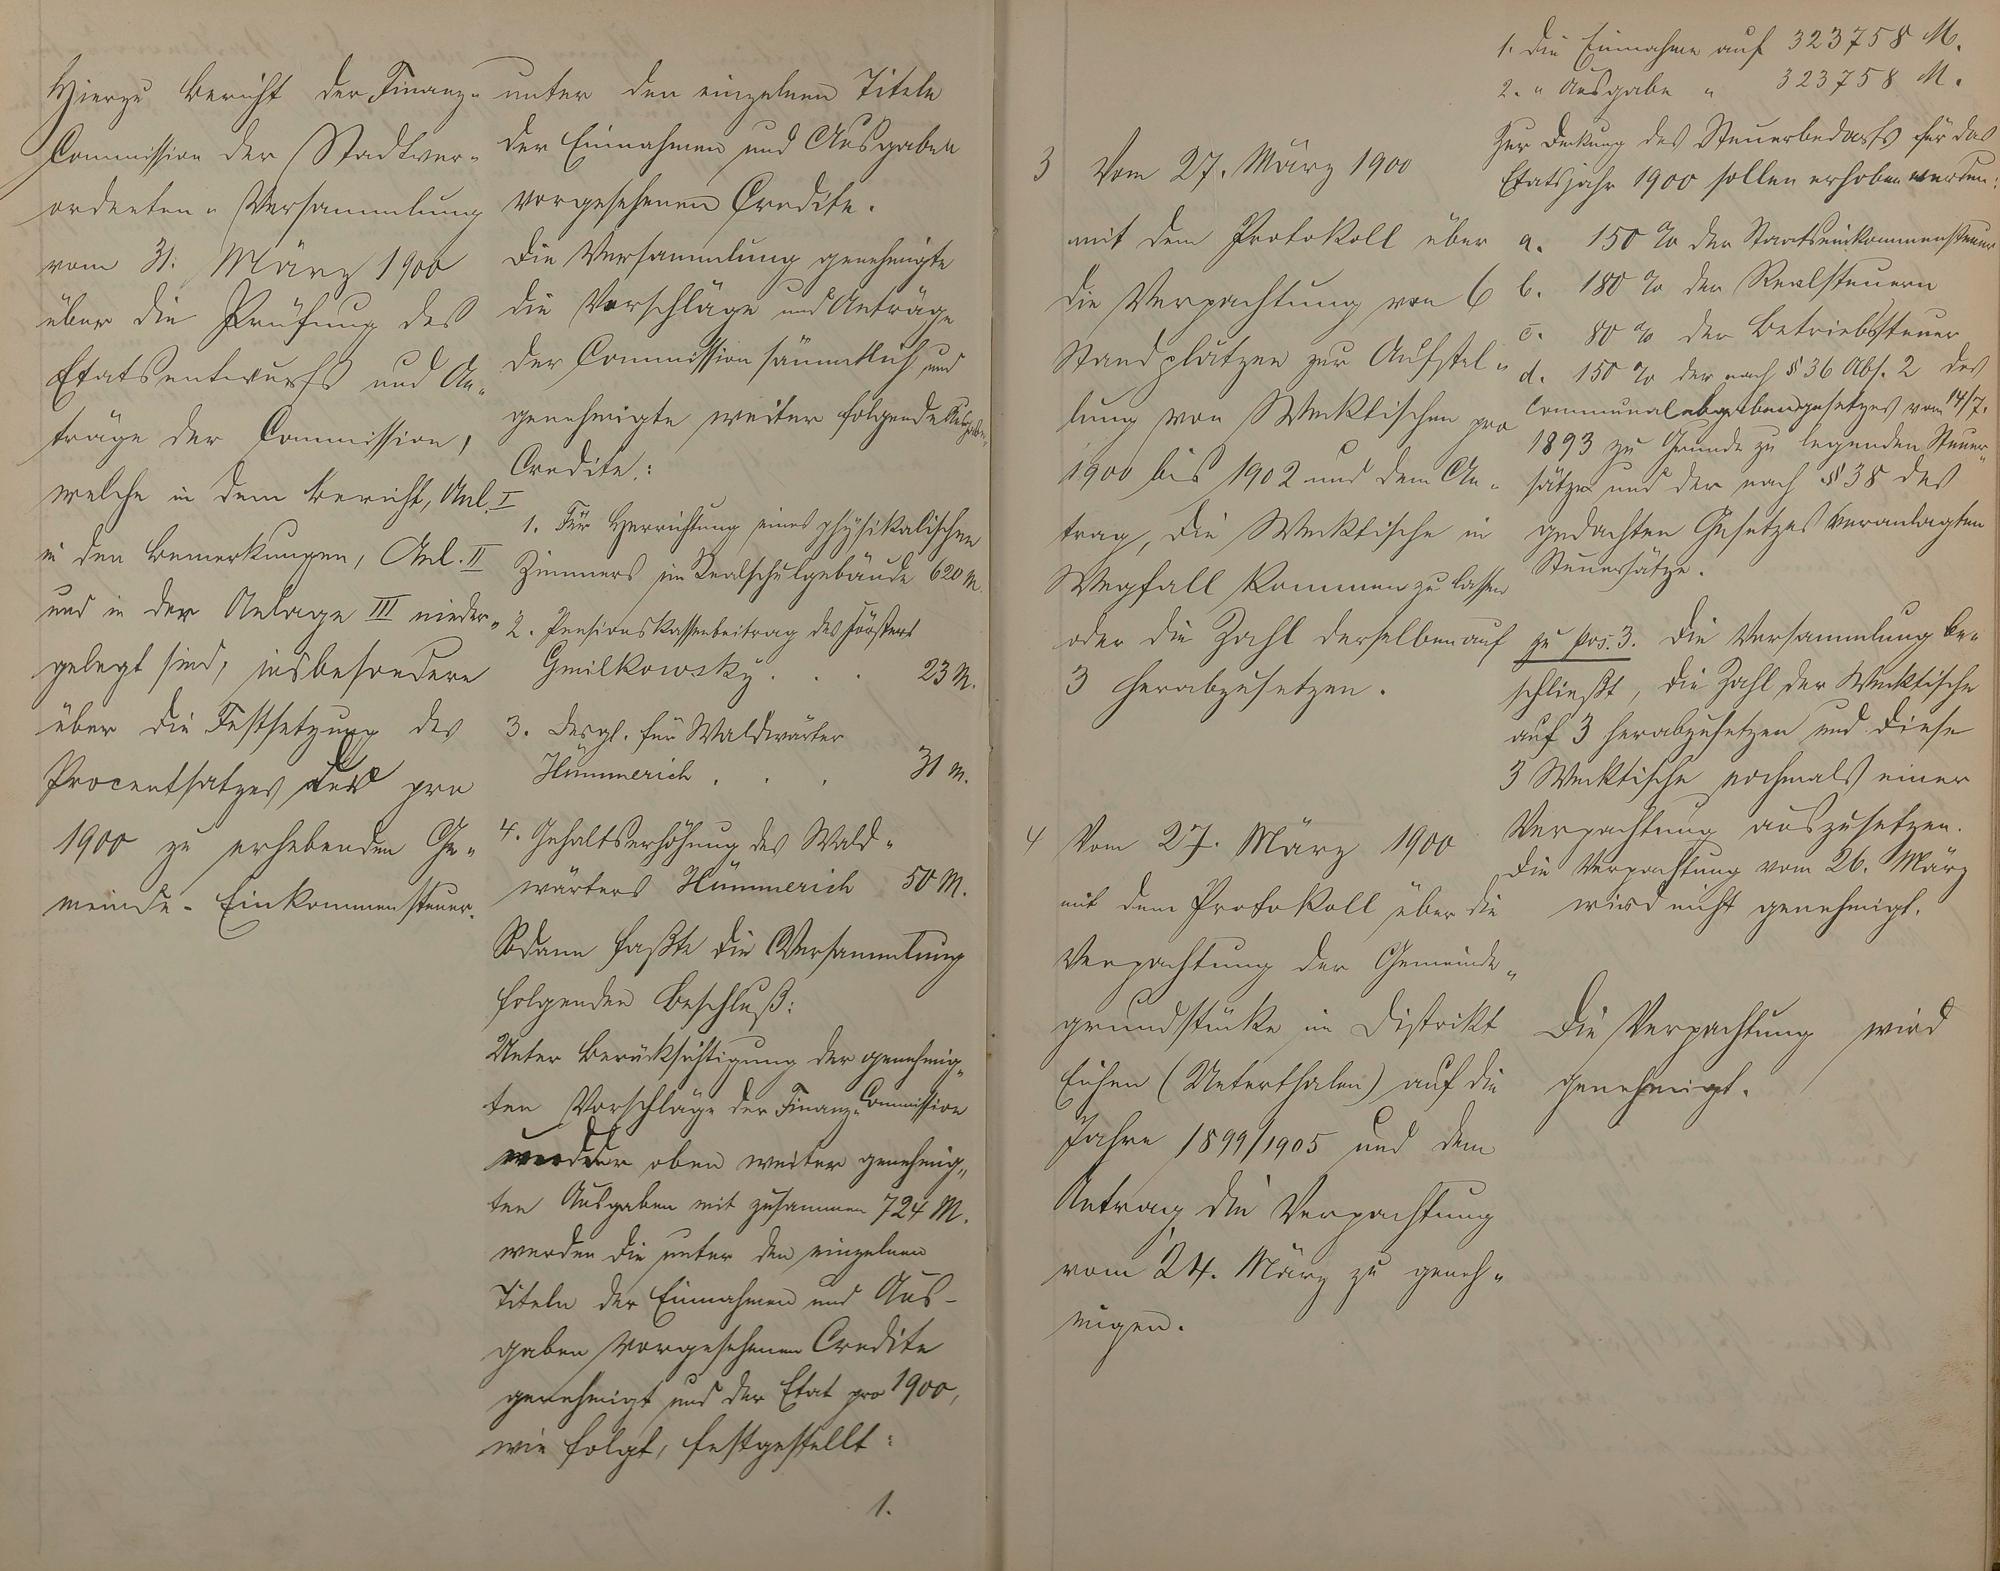 Hierzu Bericht der Finanz-
Commission der Stadtver-
ordneten-Versammlung
vom 31. März 1900
über die Prüfung des
Etatsentwurfs und An-
träge der Commission,
welche in dem Bericht, Anl. I
in den Bemerkungen, Anl. II
und in der Anlage III nieder-
gelegt sind, insbesondere
über die Festsetzung des
Procentsatzes der pro
1900 zu erhebenden Ge-
meinde-Einkommensteuer.
unter den einzelnen Titeln
der Einnahmen und Ausgaben
vorgesehenen Credite.
Die Versammlung genehmigte
die Vorschläge und Anträge
der Commission sämmtlich und
genehmigte weiter folgende Ausgabe-
Credite:
1. Für Herrichtung eines physikalischen
Zimmers im Realschulgebäude 620 M.
2. Pensionskassenbeitrag des Försters
Gmilkowsky . . . 23 M.
3. Desgl. für Waldwärter
Hümmerich . . . 31 M.
4. Gehaltserhöhung des Wald-
wärters Hümmerich 50 M.
Sodann faßte die Versammlung
folgenden Beschluß:
Unter Berücksichtigung der genehmig-
ten Vorschläge der Finanz-Commission
und der oben weiter genehmig-
ten Ausgaben mit zusammen 724 M.
werden die unter den einzelnen
Titeln der Einnahmen und Aus-
gaben vorgesehenen Credite
genehmigt und der Etat pro 1900,
wie folgt, festgestellt:
1.
3 Vom 27. März 1900
mit dem Protokoll über
die Verpachtung von 6
Standplätzen zur Aufstel-
lung von Wecktischen pro
1900 bis 1902 und dem An-
trag, die Wecktische in
Wegfall kommen zu lassen
oder die Zahl derselben auf
3 herabzusetzen.
4 Vom 27. März 1900
mit dem Protokoll über die
Verpachtung der Gemeinde-
grundstücke im Distrikt
Eichen (Unterthalen) auf die
Jahre 1899/1905 und dem
Antrag die Verpachtung
vom 24. März zu geneh-
migen.
1. Die Einnahme auf 323758 M.
2. " Ausgabe " 323758 M.
Zur Deckung des Steuerbedarfs für das
Etatsjahr 1900 sollen erhoben werden:
a. 150 % der Staatseinkommensteuer
b. 180 % der Realsteuern
c. 80 % der Betriebssteuer
d. 150 % der nach § 36 Abs. 2 des
Communalabgabengesetzes vom 14/7.
1893 zu Grunde zu legenden Steuer-
sätze und der nach § 38 des
gedachten Gesetzes veranlagten
Steuersätze.
zu pos. 3. Die Versammlung be-
schließt, die Zahl der Wecktische
auf 3 herabzusetzen und diese
3 Wecktische nochmals einer
Verpachtung auszusetzen.
Die Verpachtung vom 26. März
wird nicht genehmigt.
Die Verpachtung wird
genehmigt.